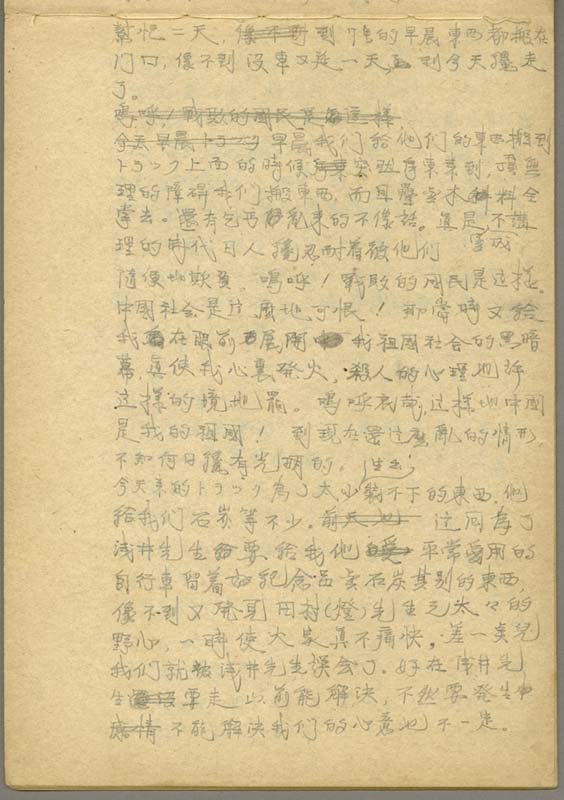 幫忙二天，像不到7号的早晨東西都搬在
门口，像不到没車又延一天，到今天纔走
了。
嗚呼！戰敗的國民是這樣
今天早晨トラック早晨我们给他们的東西搬到
トラック上面的時候 到，頂無
理的障碍我们搬東西。而且 木料全
拿去。還有乞丐亂来的不像話。真是不講
理的時代日人纔忍耐着被他们
隨便地欺負。嗚呼！戰敗的国民是这様。
中國社会是这 地可恨！那當時又给
我在眼前展開 我祖國社会的黑暗
幕真使我心裏発火，殺人的心理也許
这様的境地罷。嗚呼 这様地中國
是我的祖國！到現在還这麽亂的情形，
不知何日纔有光明的。
今天来的トラック為了太小躺不下的東西，他
给我们石炭等不少。 这回為了
浅井先生 要给我他 平常 用的
自行車留着 紀念品 石炭 别的東西，
像不到又発見田村(燈)先生之太々的
野心，一時使大家真不痛快。差一奌児
我们就被浅井先生誤会了。好在浅井先
生 要走以前能解決，不然要発生
感情不能解決我们的心意也不一定。